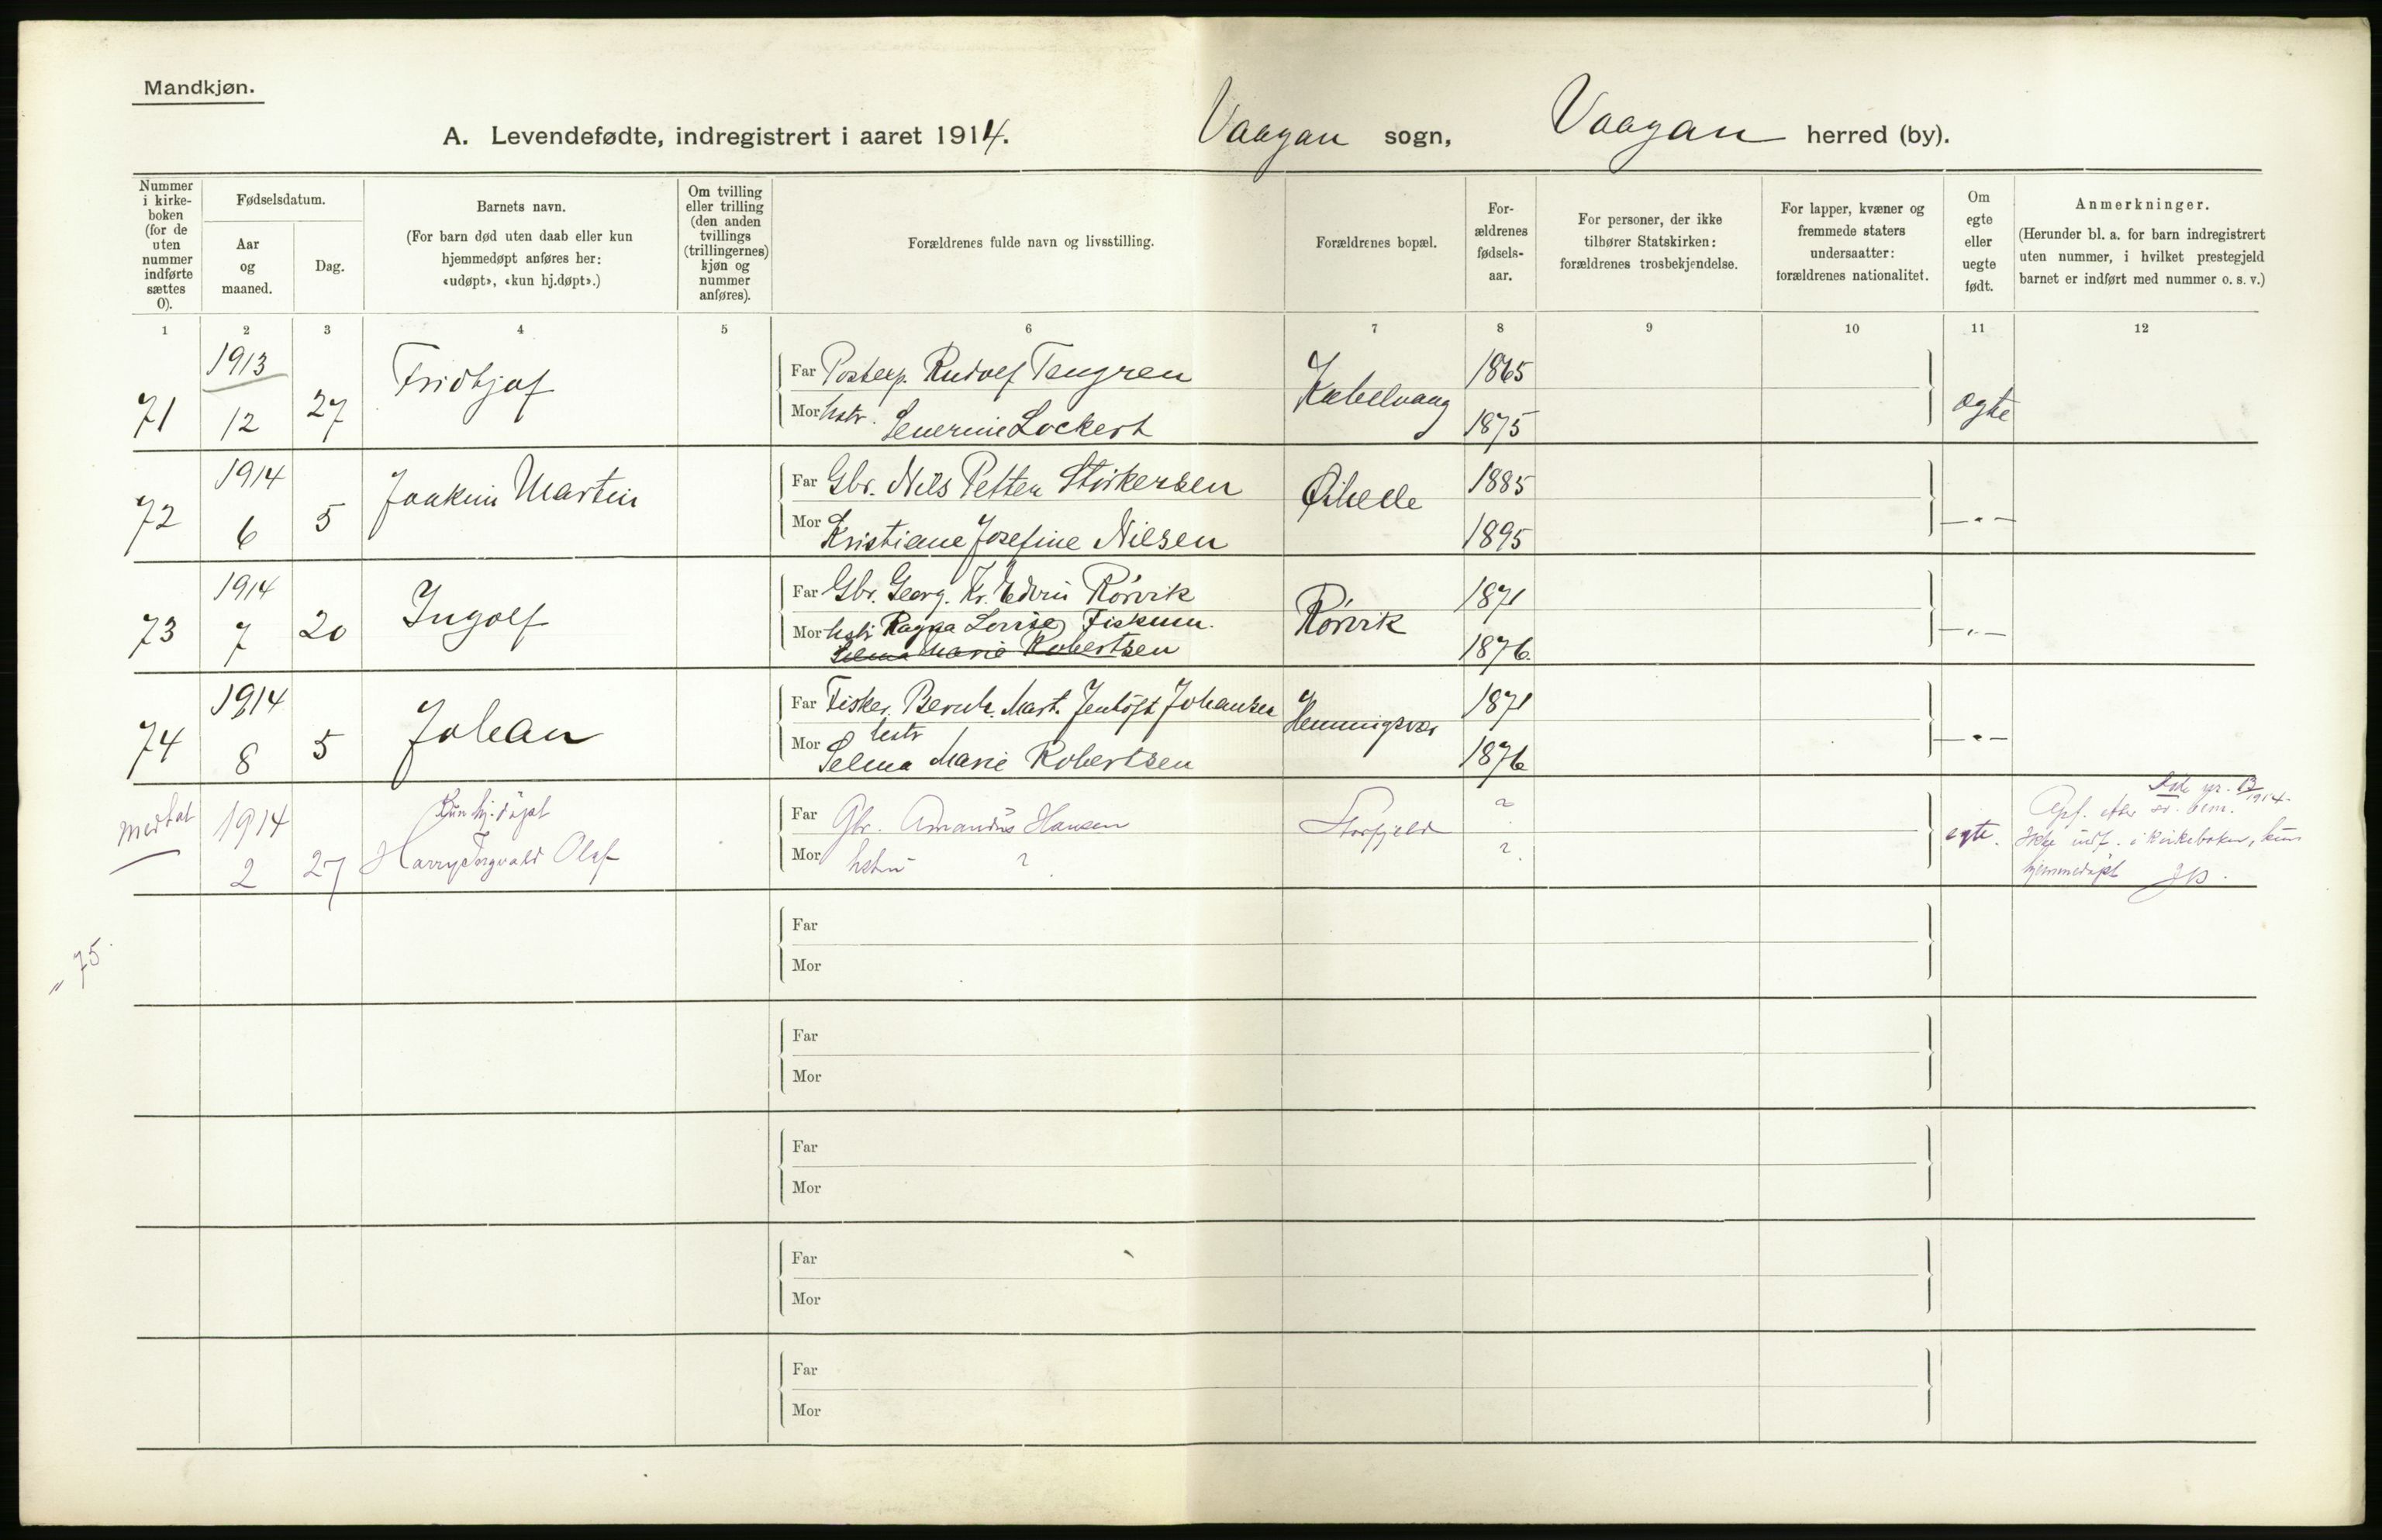 Mandkjøn.
A. Levendefødte, indregistrert i aaret 1914. Vaagan sogn, Vaagan herred (by).
Nummer i kirke- boken (for de uten nummer indførte sættes 0).
Fødselsdatum.
Aar og maaned.
Dag.
Barnets navn.
(For barn død uten daab eller kun hjemmedøpt anføres her: «udøpt», «kun hj.døpt».)
Om tvilling eller trilling (den anden tvillings (trillingernes) kjøn og nummer anføres).
Forældrenes fulde navn og livsstilling.
Forældrenes bopæl.
For- ældrenes fødsels- aar.
For personer, der ikke tilhører Statskirken: forældrenes trosbekjendelse.
For lapper, kvæner og fremmede staters undersaatter: forældrenes nationalitet.
Om egte eller uegte født.
Anmerkninger.
(Herunder bl. a. for barn indregistrert uten nummer, i hvilket prestegjeld barnet er indført med nummer o. s. v.)
1 2 3 4 5 6 7 8 9 10 11 12
1913 Fridtjof Far Postexp. Rudolf Tengren Kabelvaag 1865
71 12 27 Mor hstr. Severine Lockert 1875 ægte
1914 Joakim Martin Far Gbr. Nils Petter Størkersen Ørhelle 1885
72 6 5 Mor Kristiane Josefine Nilsen 1895 — " —
1914 Ingolf Far Gbr. Georg. Kr. Edvin Rørvik Rørvik 1871
73 7 20 Mor hstr Ragna Lovise Fiskum. 1876. — " —
Selma Marie Robertsen
1914 Johan Far Fisker Bernh. Mart. Jentoft Johansen Henningsvær 1871
74 8 5 Mor hstr Selma Marie Robertsen 1876 — " —
Medtat 1914 Kun hj.døpt Far Gbr. Amandus Hansen Storfjeld ?
2 27 Harry Torgvald Olaf Mor hstru ? ? egte.
nr. 13 1914.
Opf. efter
Ikke indf. i kirkeboken, kun
hjemmedøpt
" 75.
Far
Mor
Far
Mor
Far
Mor
Far
Mor
Far
Mor